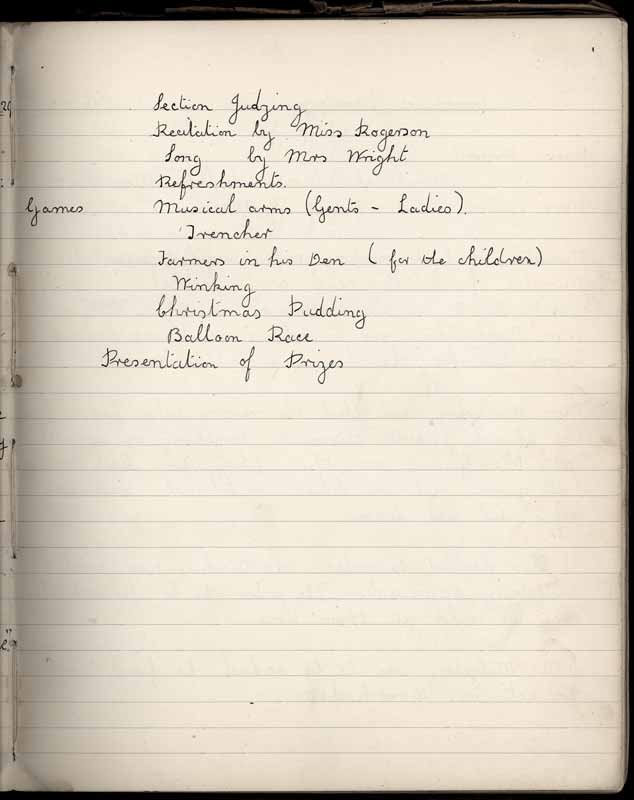 Section Judging
Recitation by Miss Rogerson
Song by Mrs Wright
Refreshments.
Games Musical arms (Gents - Ladies).
Trencher
Farmers in his Den ( for the children)
Winking
Christmas Pudding
Balloon Race
Presentation of Prizes